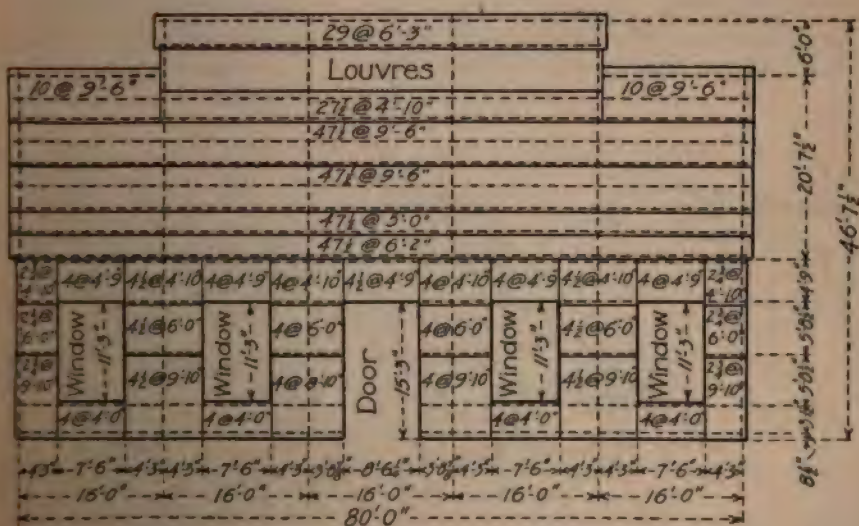 29 @ 6'-3"
Louvres
10 @ 9'-6" 10 @ 9'-6"
27½ @ 4'-10"
47½ @ 9'-6"
47½ @ 9'-6"
47½ @ 5'-0"
47½ @ 6'-2"
2¼ @ 4'-10" 4@4'-9" 4½@4'-10" 4@4'-9" 4@4'-10" 4½@4'-9" 4@4'-10" 4@4'-9" 4½@4'-10" 4@4'-9" 2¼@ 4'-10"
2¼@ 6'-0" Window 11'-3" 4½@6'-0" Window 11'-3" 4@6'-0" Door 15'-3" 4@6'-0" Window 11'-3" 4½@6'-0" Window 11'-3" 2¼@ 6'-0"
2¼@ 9'-10" 4½@9'-10" 4@9'-10" 4½@9'-10" 2¼@ 9'-10"
4@4'-0" 4@4'-0" 4@4'-0" 4@4'-0"
4'3" 7'-6" 4'3" 4'3" 7'-6" 4'3" 4'3" 7'-6" 4'3" 4'3" 7'-6" 4'3"
16'-0" 16'-0" 16'-0" 16'-0" 16'-0"
80'-0"
6'-0"
20'-7½"
46'-7½"
4'-9"